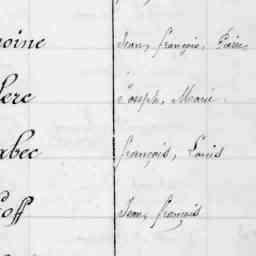 oine Jean, françois, Pierre
lerc Joseph, Marie.
abec françois, Louis
off Jean, françois